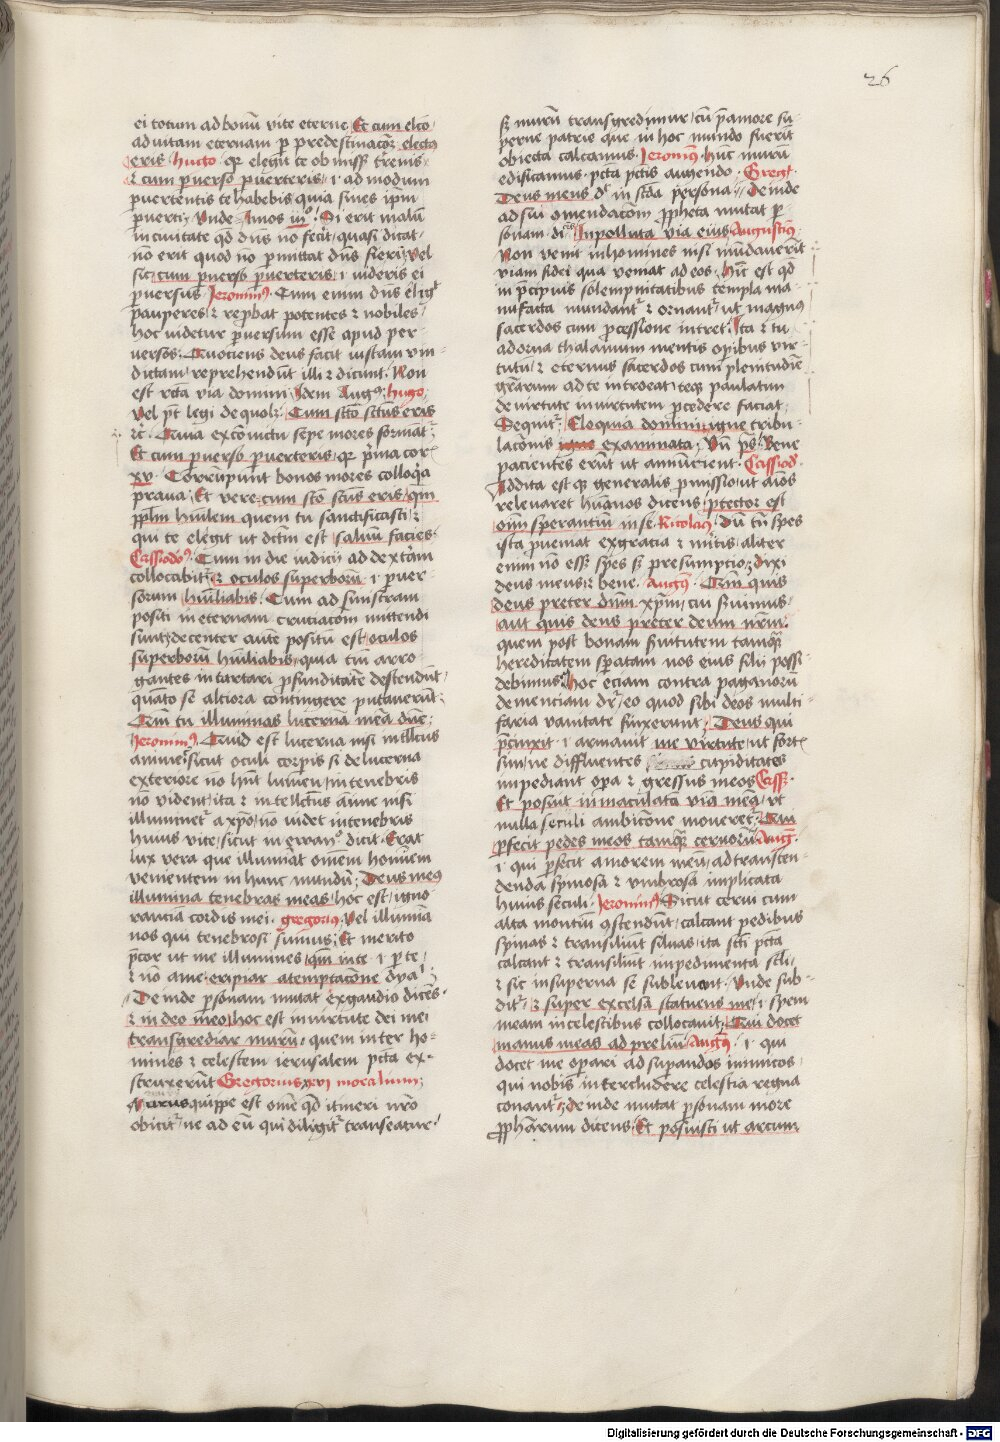 26
ei totum ad bonū vite eterne Et cum elc̄o
ad vitam eternam ꝑ predestinac̄oꝫ electꝰ
eris hugo qꝛ elegit te ob
⁊ cum ꝑuerso ꝑuerteris i ad modum
ꝑuertentis te habebis quia sines ipm̄
ꝑuerti Vnde Amos iiiº Si erit malū
in ciuitate qd̄ dn̄s nō fecit quasi dicat
nō erit quod no ꝑmittat dn̄s fieri Vel
sic cum ꝑuerso ꝑuerteris i videris ei
ꝑuersus Jeronimꝰ Cum enim dn̄s eligit
pauperes ⁊ reprobat potentes ⁊ nobiles
hoc videtur ꝑuersum esse apud per
uersos Quociens deus facit iustam vin
dictam reprehendūt illi ⁊ dicunt Non
est rc̄ta via domini Idem Augꝰ hugo
Vel pt̄ legi de quolꝫ Cum scō scūs eris
⁊c̄ Quia exconuictu sepe mores formātᷣ
Et cum ꝑuerso ꝑuerteris qꝛ prima cor
xv Corrūpunt bonos mores colloq̄a
praua Et vere cum sc̄o sc̄us eris qm̄
pplm̄ hūilem quem tu sanctificasti ⁊
qui te elegit ut dc̄tm est saluū facies
Cassiodoꝰ Cum in die iudicii ad dextrām
collocabitᷣ ⁊ oculos superborū i ꝑuer
sorum hūiliabis Cum ad sinistram
positi in eternam cruciac̄om mittendi
sunt decenter aute positū est oculos
superborū hūiliabis quia tm̄ arro
gantes in tartari ꝓfunditatē descendūt
quāto se altiora contingere putauerūt
Qm̄ tu illuminas lucernā meā dn̄e
Jeronimꝰ Quid est lucerna nisi intllc̄us
anime sicut oculi corꝑis si de lucerna
exteriore nō hn̄t lumen in tenebris
nō vident ita ⁊ intellc̄tus anime nisi
illuminetᷣ a xpō nō videt in tenebris
huius vite sicut in ewan° dicit Erat
lux vera que illuminat omem hominem
venientem in hunc mundū Deus meꝰ
illumina tenebras meas hoc est igno
rancia cordis mei gregorius Vel illumia
nos qui tenebrosi sumus Et merito
p̄cor ut me illumines qm̄ in te i ꝑ te
⁊ nō a me eripiar a temptac̄one dya
Deinde ꝑsonam mutat ex gaudio dicēs
⁊ in deo meo hoc est in virtute dei mei
transgrediar murū quem inter ho
mines ⁊ celestem ierusalem pctā ex
struxerūt Gregorius xxvi moralium
Murus quippe est ome qd̄ itineri nr̄o
obicitᷣ ne ad eū qui diligitᷣ transeatur
sꝫ murū transgredimur cū p̄ amore su
ꝑerne patrie que in hoc mundo fuerūt
obiecta calcamus Jeronimꝰ hūc murū
edificamus pctā pctīs augendo Gregꝰ
Deus meus dꝛ in sc̄da persona Deinde
ad sui om̄endac̄om ꝓpheta mutat ꝑ
sonam dicēs Inpolluta via eius Augustinꝰ
Non venit in homines nisi mūdauerit
viam fidei qua veniat ad eos Hīc est qd̄
in p̄cipuis solempnitatibus templa ma
nufacta mundantᷣ ⁊ ornantᷣ ut magnꝰ
sacerdos cum ꝓcessione intret Ita ⁊ tu
adorna thalamum mentis opibus vir
tutū ⁊ eternus sacerdos cum plenitudīe
grārum ad te introeat teqꝫ paulatim
de virtute in virtutem ꝓcedere faciat
Sequitᷣ Eloquia domini igne tribu
lac̄onis examinata Vn̄ ps̄ Bene
pacientes erūt ut annūcient Cassiodꝰ
Addita est qꝫ generalis ꝓmissio ut aīos
releuaret hūanos dicens ꝓtector est
om̄ sperantiū in se Nicolaꝰ Dū tn̄ spes
ista ꝓueniat ex gracia ⁊ mr̄itis aliter
enim nō esset spes sꝫ presumptio dixi
deus meus ⁊ bene Augꝰ Qm̄ quis
deus preter dūm xpm̄ cui seruimus
aut quis deus preter deum nrm̄
quem post bonam seruitutem tamqᷓ
hereditatem speratam nos eius filii possi
debimus Hoc eciam contra paganorū
demenciam dr̄ eo quod sibi deos multi
faria vanitate finxerunt Deus qui
p̄cinxit i armauit me virtute ut fort
sim ne diffluentes cupiditates
impediant opa ⁊ gressus meos Cassꝰ
Et posuit inmaculatā viā meā vt
nulla seculi ambicōne moueretᷣ Qui
ꝑfecit pedes meos tamqᷓ ceruorū Augꝰ
i qui ꝑfecit amorem meū ad transcen
denda spinosa ⁊ vmbrosa implicata
huius seculi Jeronimꝰ Sicut cerui cum
alta montiū ꝯscendūt calcant pedibus
spinas ⁊ transiliūt siluas ita sc̄ti pctā
calcant ⁊ transiliūt impedimenta scli
⁊ sic in superna se subleuant Vnde sub
ditᷣ ⁊ super excelsa statuens me i spem
meam in celestibus collocauit Qui docet
manus meas ad preliū Augꝰ i qui
docet me operari ad suꝑandos inimicos
qui nobis intercludere celestia regna
conantᷣ Deinde mutat ꝑsonam more
ꝓphetarum dicens Et posuisti ut arcum
Digitalisierung gefördert durch die Deutsche Forschungsgemeinschaft - DFG